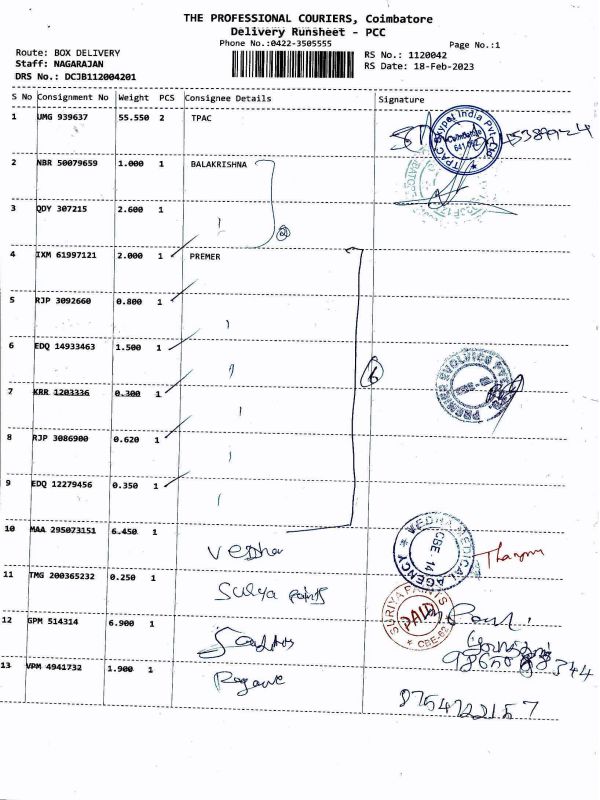 THE PROFESSIONAL COURIERS, Coimbatore
Delivery Runsheet - PCC
Phone No.:0422-3505555
Page No.:1
Route: BOX DELIVERY
Staff: NAGARAJAN
DRS No.: DCJB112004201
RS No.: 1120042
RS Date: 18-Feb-2023
S No Consignment No Weight PCS Consignee Details Signature
1 UMG 939637 55.550 2 TPAC
2 NBR 50079659 1.000 1 BALAKRISHNA
3 QDY 307215 2.600 1
4 IXM 61997121 2.000 1 PREMER
5 RJP 3092660 0.800 1
6 EDQ 14933463 1.500 1
6
7 KRR 1203336 0.300 1
8 RJP 3086900 0.620 1
9 EDQ 12279456 0.350 1
10 MAA 295073151 6.450 1
VEDHA MEDICAL AGENCY
CBE 14
11 TMG 200365232 0.250 1 Surya Paints
SURIYA PAINTS
PAID
CBE-02
12 GPM 514314 6.900 1
13 VPM 4941732 1.900 1
8754722157